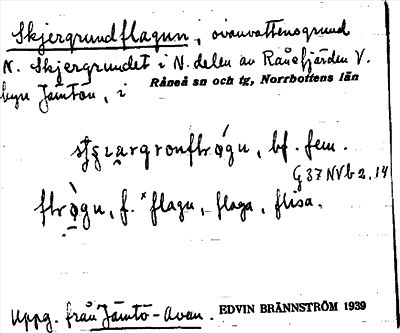 Skjergrundflagun, ovanvattensgrund
N. Skjergrundet i N. delen av Rånefjärden V.
byn Jämtön, i Råneå sn och tg, Norrbottens län
bf. fem.
G 37 NV b 2, 14
f. ˣflagu, flaga, flisa.
Uppg. från Jämtö-Avan. EDVIN BRÄNNSTRÖM 1939